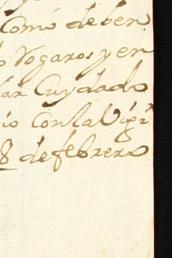 Como deben
Vogaros, y en
Cuydado
io Con la Vigi
8 de febrero